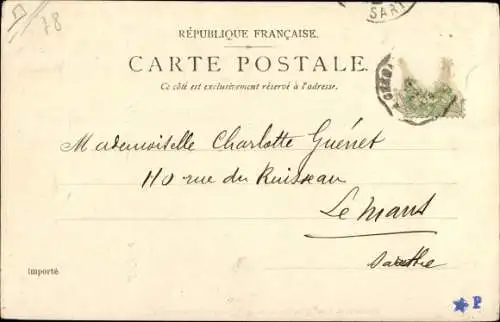 78
SARTHE
RÉPUBLIQUE FRANÇAISE.
CARTE POSTALE.
Ce côté est exclusivement réservé à l'adresse.
Mademoiselle Charlotte Guénet
110 rue du Ruisseau
Le Mans
Sarthe
importé
P